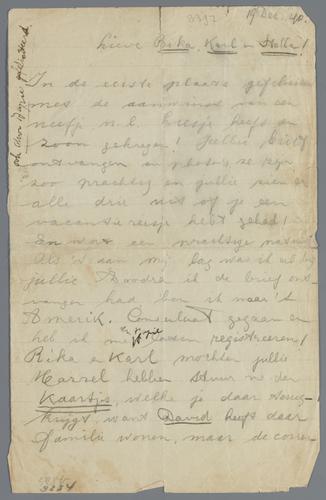 3392
19 Dec. 40.
Lieve Rika, Karl en Stella!
In de eerste plaats gefeliciteerd
met de aanwinst van een
neefje n.l. Eesje heeft een
zoon gekregen! Jullie brief
ontvangen en photo's ze zijn
zoo prachtig en jullie zien er
alle drie uit of je een
vacantie reisje hebt gehad!
En wat een prachtige natuur
Als 't aan mij lag was ik al bij
jullie. Voordat ik de brief ont-
vangen had ben ik naar 't
Amerik. Consulaat gegaan en
heb ik me laten registreeren!
Rika en Karl mochten jullie
Hassel hebben stuur me dan
Kaartjes, welke je daar terug
krijgt, want David heeft daar
familie wonen, maar de corres-
3334